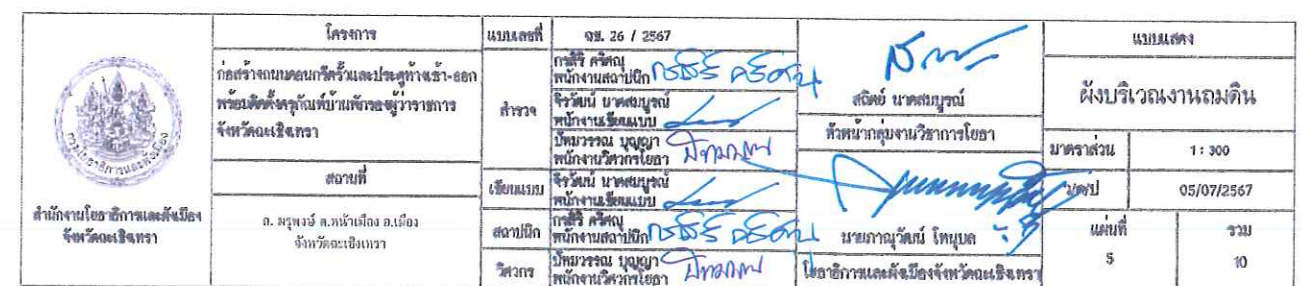 กรมโยธาธิการและผังเมือง
สำนักงานโยธาธิการและผังเมือง
จังหวัดฉะเชิงเทรา
โครงการ
ก่อสร้างถนนคอนกรีตรั้วและประตูทางเข้า-ออก
พร้อมติดตั้งครุภัณฑ์บ้านพักรองผู้ว่าราชการ
จังหวัดฉะเชิงเทรา
สถานที่
ถ. มรุพงษ์ ต.หน้าเมือง อ.เมือง
จังหวัดฉะเชิงเทรา
แบบเลขที่
ฉช. 26 / 2567
สำรวจ
กรสิริ ศรีศณุ
พนักงานสถาปนิก
จิรวัฒน์ นาคสมบูรณ์
พนักงานเขียนแบบ
ปัทมวรรณ บุญญา
พนักงานวิศวกรโยธา
เขียนแบบ
จิรวัฒน์ นาคสมบูรณ์
พนักงานเขียนแบบ
สถาปนิก
กรสิริ ศรีศณุ
พนักงานสถาปนิก
วิศวกร
ปัทมวรรณ บุญญา
พนักงานวิศวกรโยธา
สถิตย์ นาคสมบูรณ์
หัวหน้ากลุ่มงานวิชาการโยธา
นายภาณุวัฒน์ โทนุบล
โยธาธิการและผังเมืองจังหวัดฉะเชิงเทรา
แบบแสดง
ผังบริเวณงานถมดิน
มาตราส่วน
1 : 300
ว/ด/ป
05/07/2567
แผ่นที่
รวม
5
10